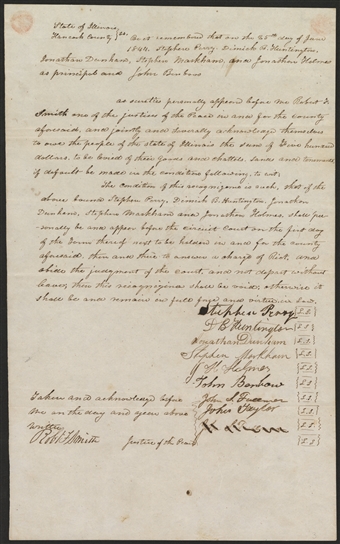 State of Illinois,
Hancock County } ss. Be it remembered that on the 25th day of June
1844. Stephen Perry, Dimick B. Huntington,
Jonathan Dunham, Stephen Markham, and Jonathan Holmes
as principal and John Benbow
as sureties personally appeared before me Robert F.
Smith one of the justices of the Peace in and for the county
aforesaid, and jointly and severally acknowledge themselves
to owe the people of the state of Illinois the sum of Five hundred
dollars, to be levied of their goods and chattels, lands and tenements
if default be made in the condition following, to wit:
The condition of this recognizance is such, that if the
above bound Stephen Perry, Dimick B. Huntington, Jonathan
Dunham, Stephen Markham and Jonathan Holmes, shall per-
sonally be and appear before the circuit court on the first day
of the term thereof next to be holden in and for the county
aforesaid, then and there to answer a charge of Riot, and
abide the judgment of the court, and not depart without
leave, then this recognizance shall be void, otherwise it
shall be and remain in full force and virtue in law.
Stephen Perry L S
D B Huntington L S
Jonathan Dunham L S
Stephen Markham L S
Holmes L S
John Benbow L S
Taken and acknowledged before John S. L S
me on the day and year above John Taylor L S
written L S
Robt F Smith Justice of the Peace